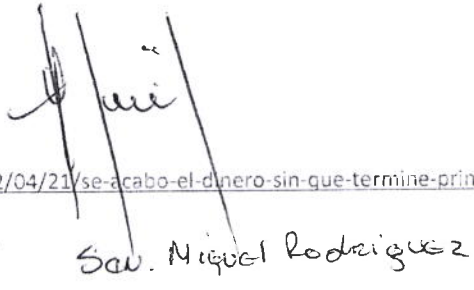 2/04/21/se-acabo-el-dinero-sin-que-termine-prin
Sen. Miguel Rodriguez